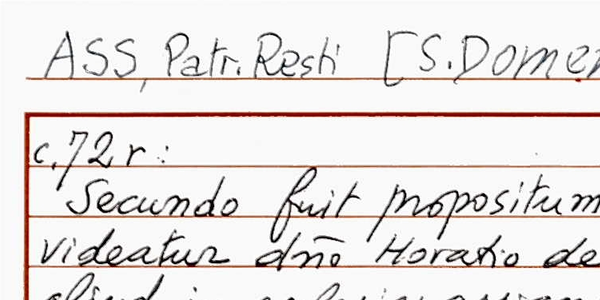 ASS, Patr. Resti [S. Domen
c. 72 r:
Secundo fuit propositum
videatur dño Horatio de